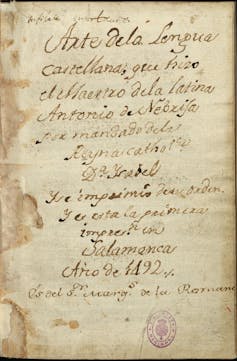 Arte dela Lengua
castellana, que hizo
el Maestro dela latina
Antonio de Nebrija
por mandado dela
Reyna catholca
Da. Ysabel
Y se imprimio de su orden.
Y es esta la primera
impresn. en
Salamanca
Año de 1492.
Es del Sr. Marqs. de la Romana